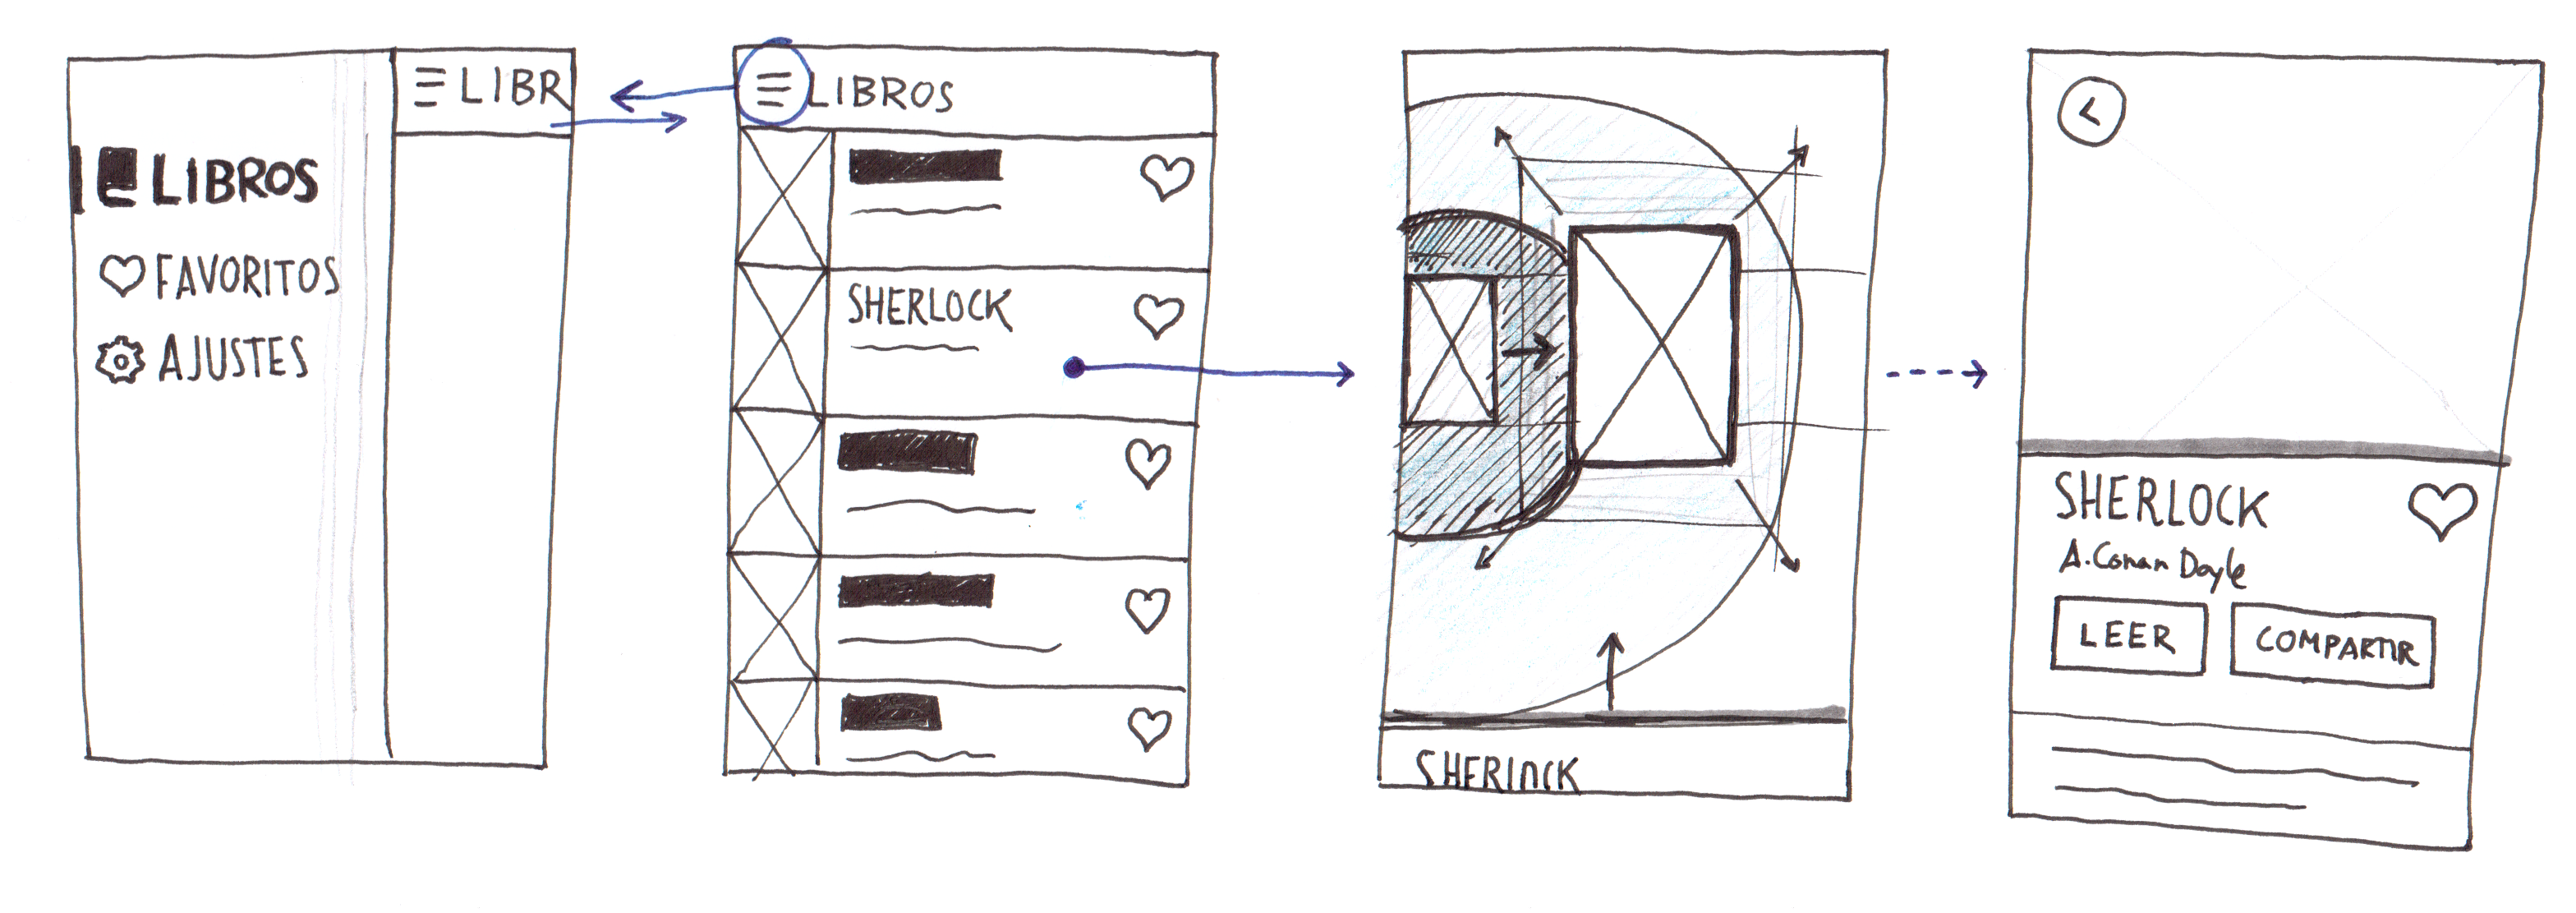 LIBR
LIBROS
FAVORITOS
AJUSTES
LIBROS
SHERLOCK
SHERLOCK
SHERLOCK
A. Conan Doyle
LEER
COMPARTIR